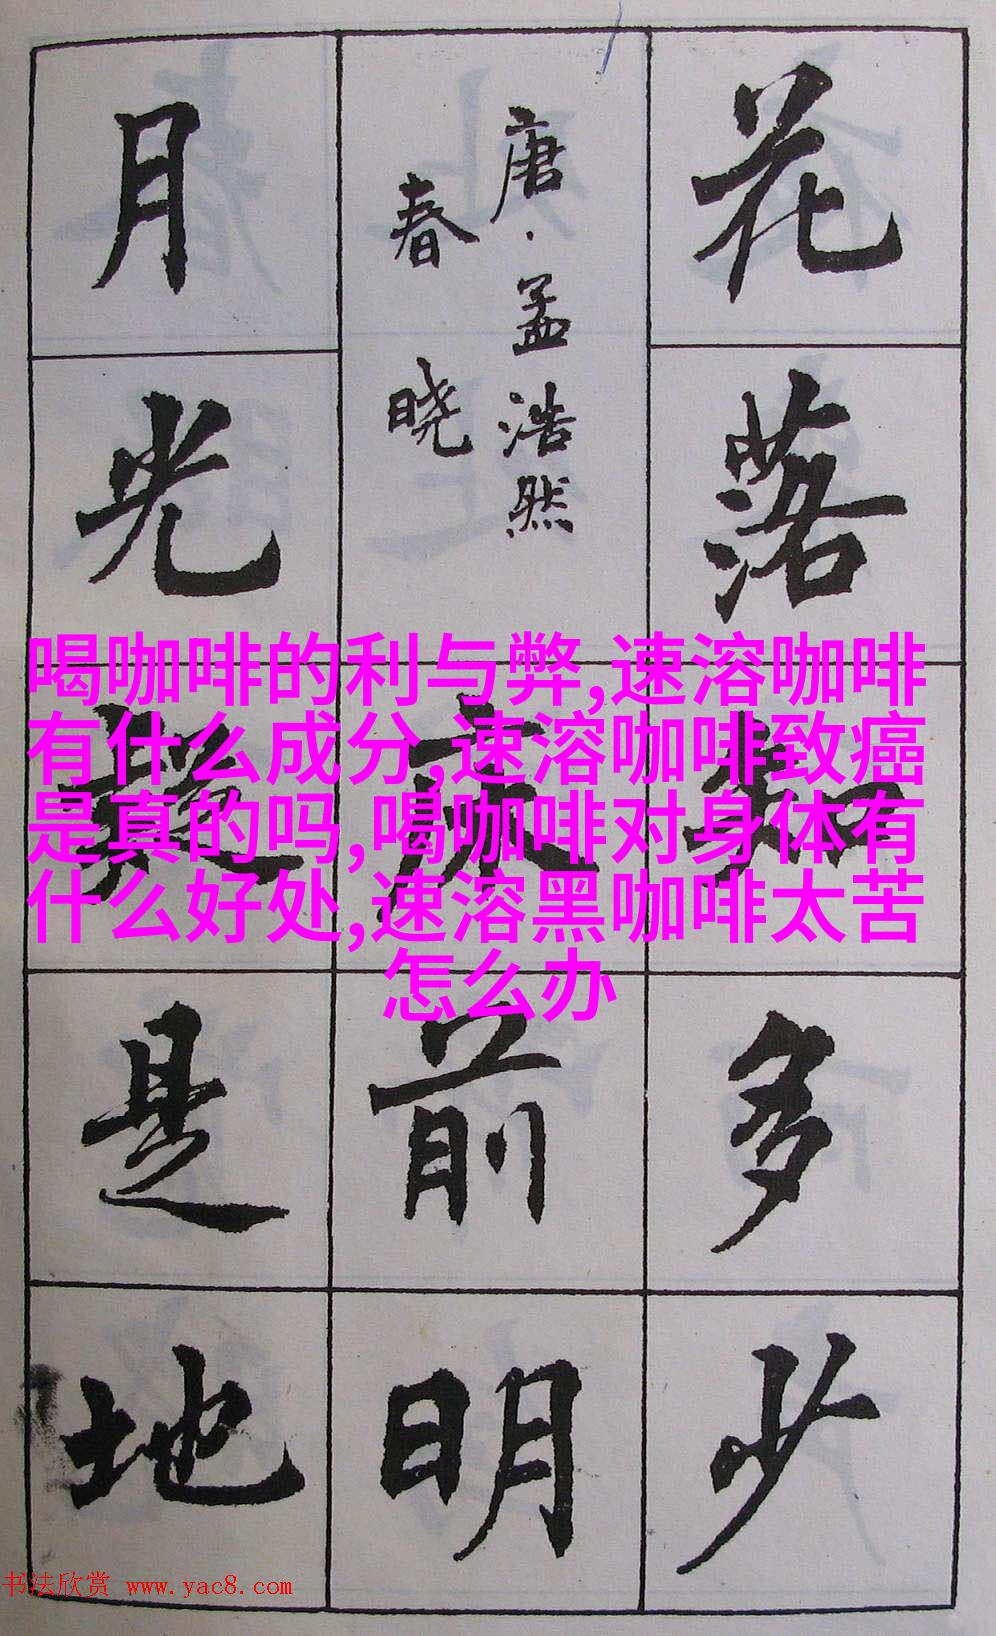 花落知多少
唐·孟浩然
春晓
床前明
月光疑是地
喝咖啡的利与弊,速溶咖啡
有什么成分,速溶咖啡致癌
是真的吗,喝咖啡对身体有
什么好处,速溶黑咖啡太苦
怎么办
书法欣赏 www.yac8.com